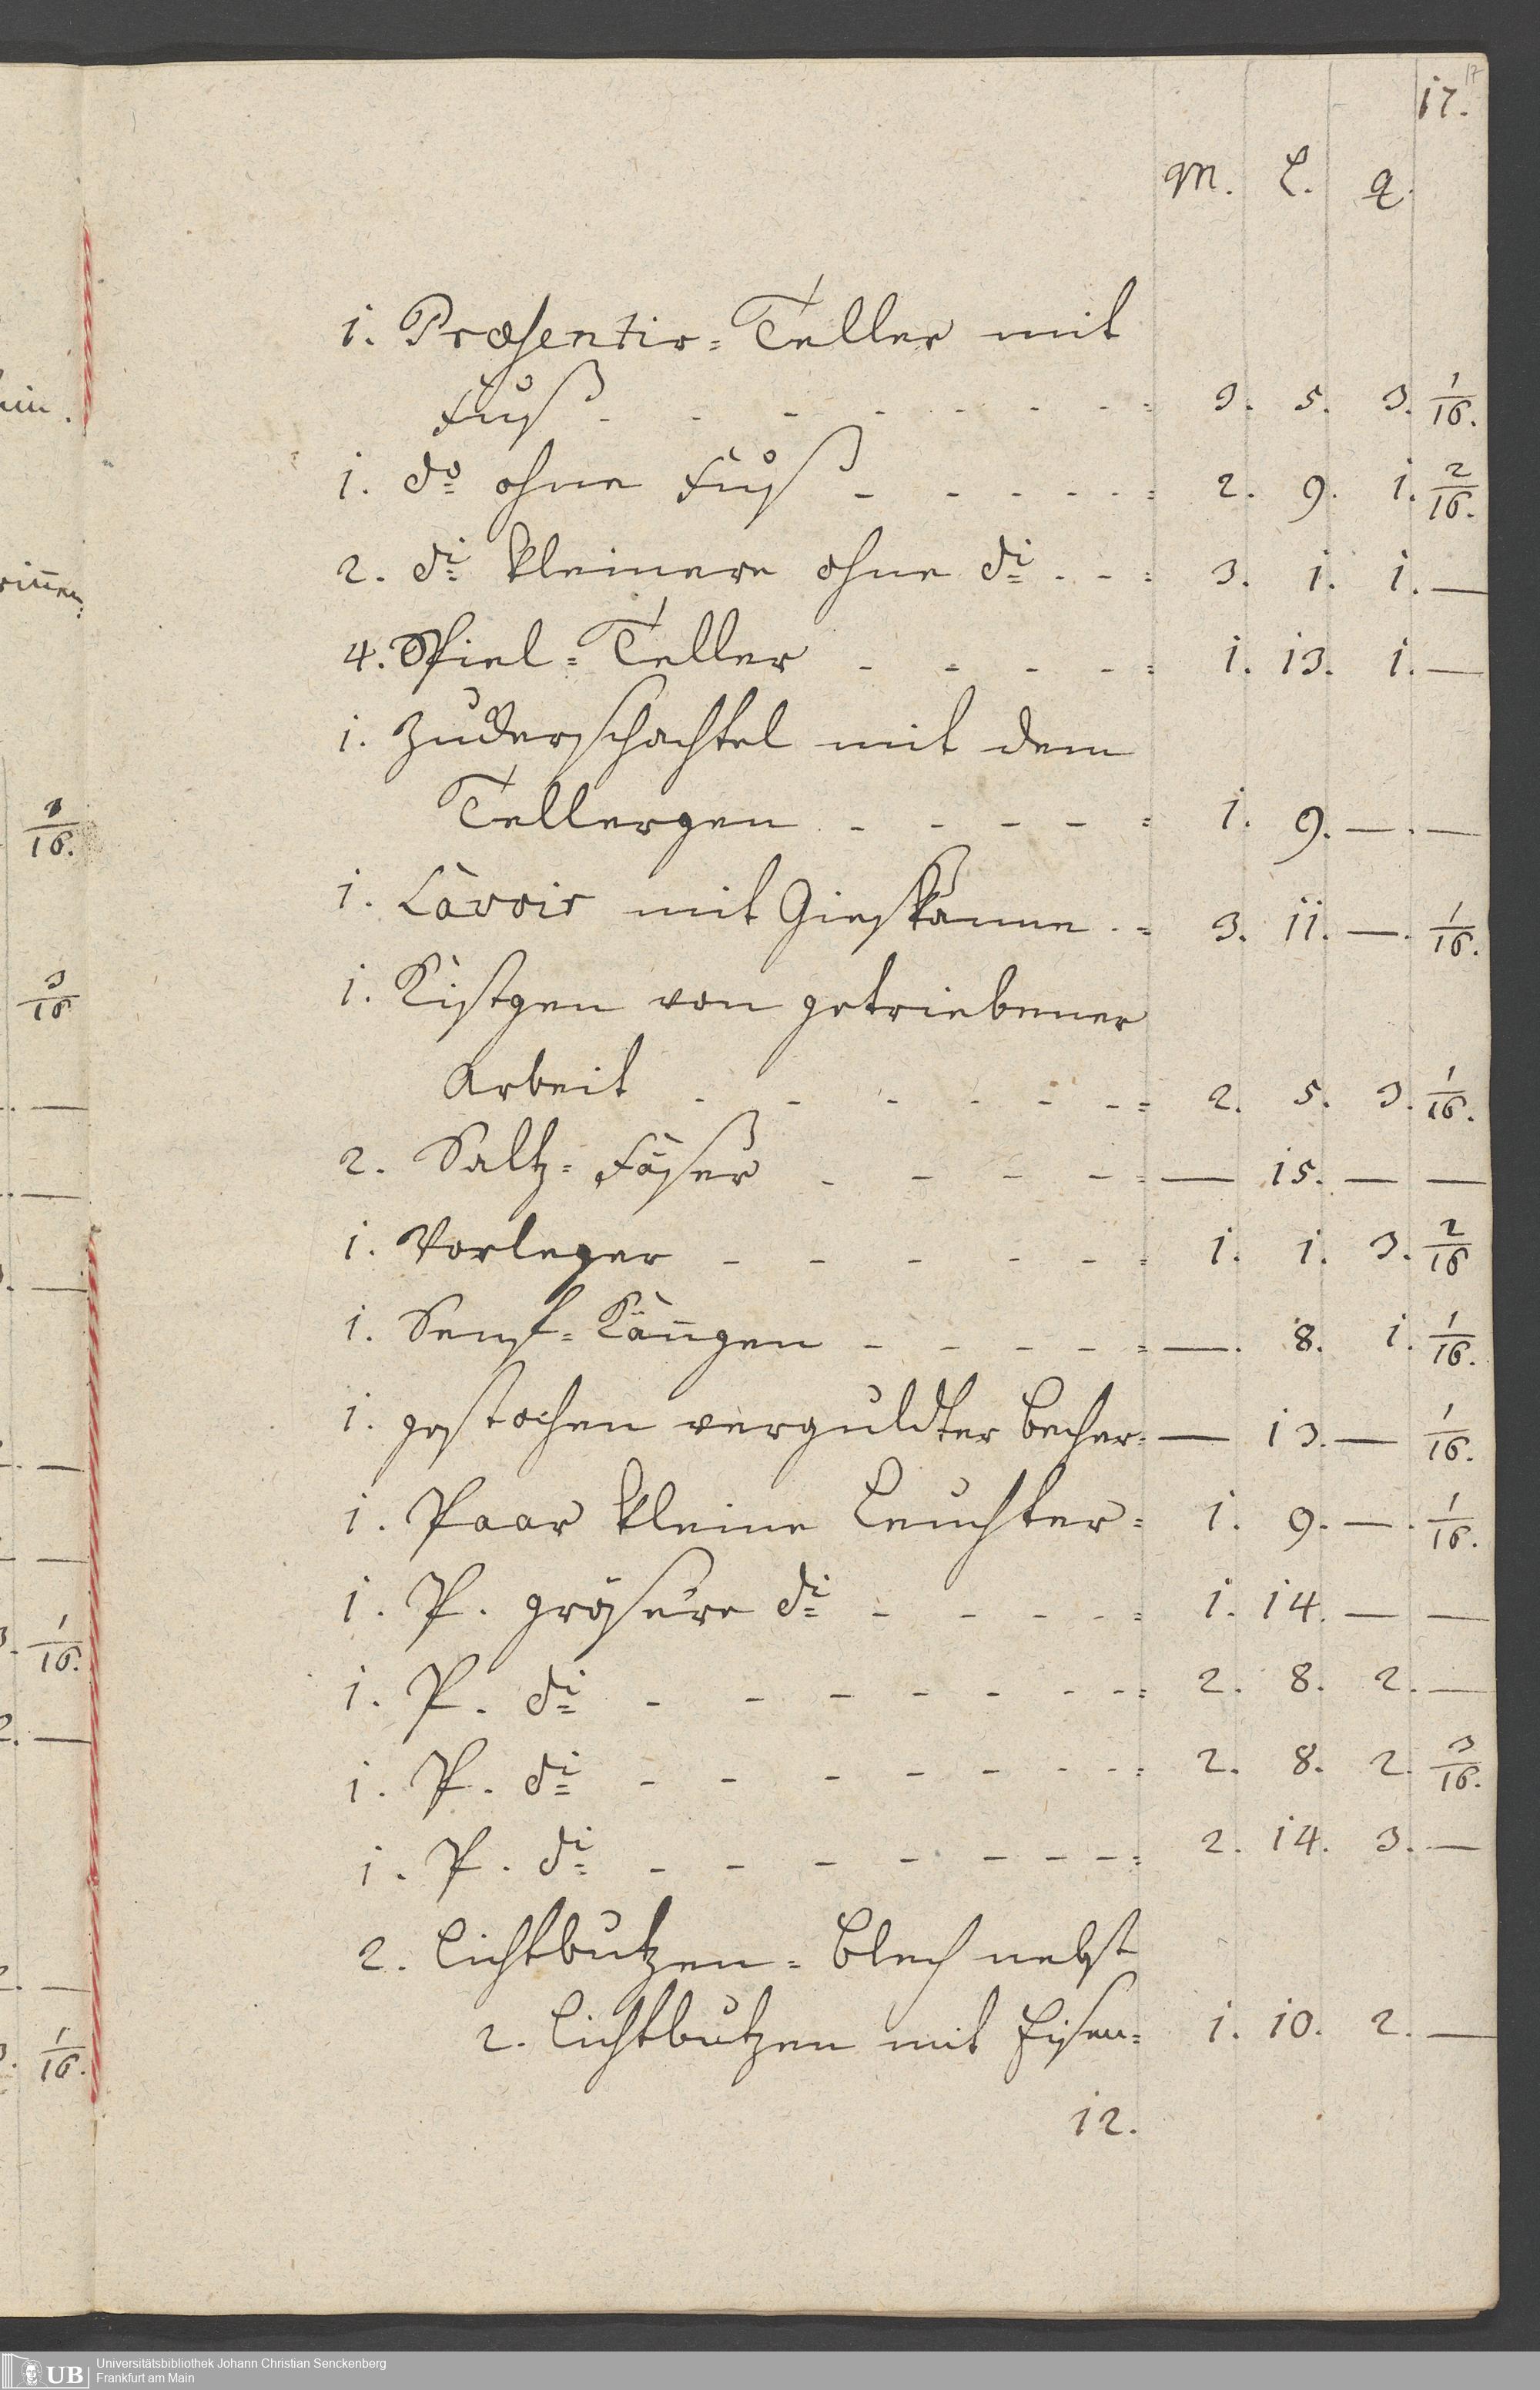 17
17.
M. L. q.
1. Præsentir= Teller mit
Fuß - - - - - - = 3. 5. 3. 1/16.
1. do= ohne Fuß - - - - - = 2. 9. 1. 2/16.
2. di= kleinere ohne di= - - = 3. 1. 1. —
4. Spiel= Teller - - - - = 1. 13. 1. —
1. Zuckerschachtel mit dem
Tellergen - - - - = 1. 9. — . —
1. Lavoir mit Gieskanne - = 3. 11. — . 1/16.
1. Kistgen von getriebener
Arbeit - - - - - - = 2. 5. 3. 1/16.
2. Saltz= Fäßer - - - - = — 15. — —
1. Vorleger - - - - - = 1. 1. 3. 2/16
1. Senft= Kän̄gen - - - - = — . 8. 1. 1/16.
1. gestochen verguldter Becher = — 13. — 1/16.
1. Paar kleine Leuchter = 1. 9. — . 1/16.
1. P. grösere di= - - - - = 1. 14. — —
1. P. di= - - - - - - - = 2. 8. 2. —
1. P. di= - - - - - - - = 2. 8. 2. 3/16.
1. P. di= - - - - - - - = 2. 14. 3. —
2. Lichtbutzen= Blech nebst
2. Lichtbutzen mit Eisen = 1. 10. 2. —
12.
UB Universitätsbibliothek Johann Christian Senckenberg
Frankfurt am Main